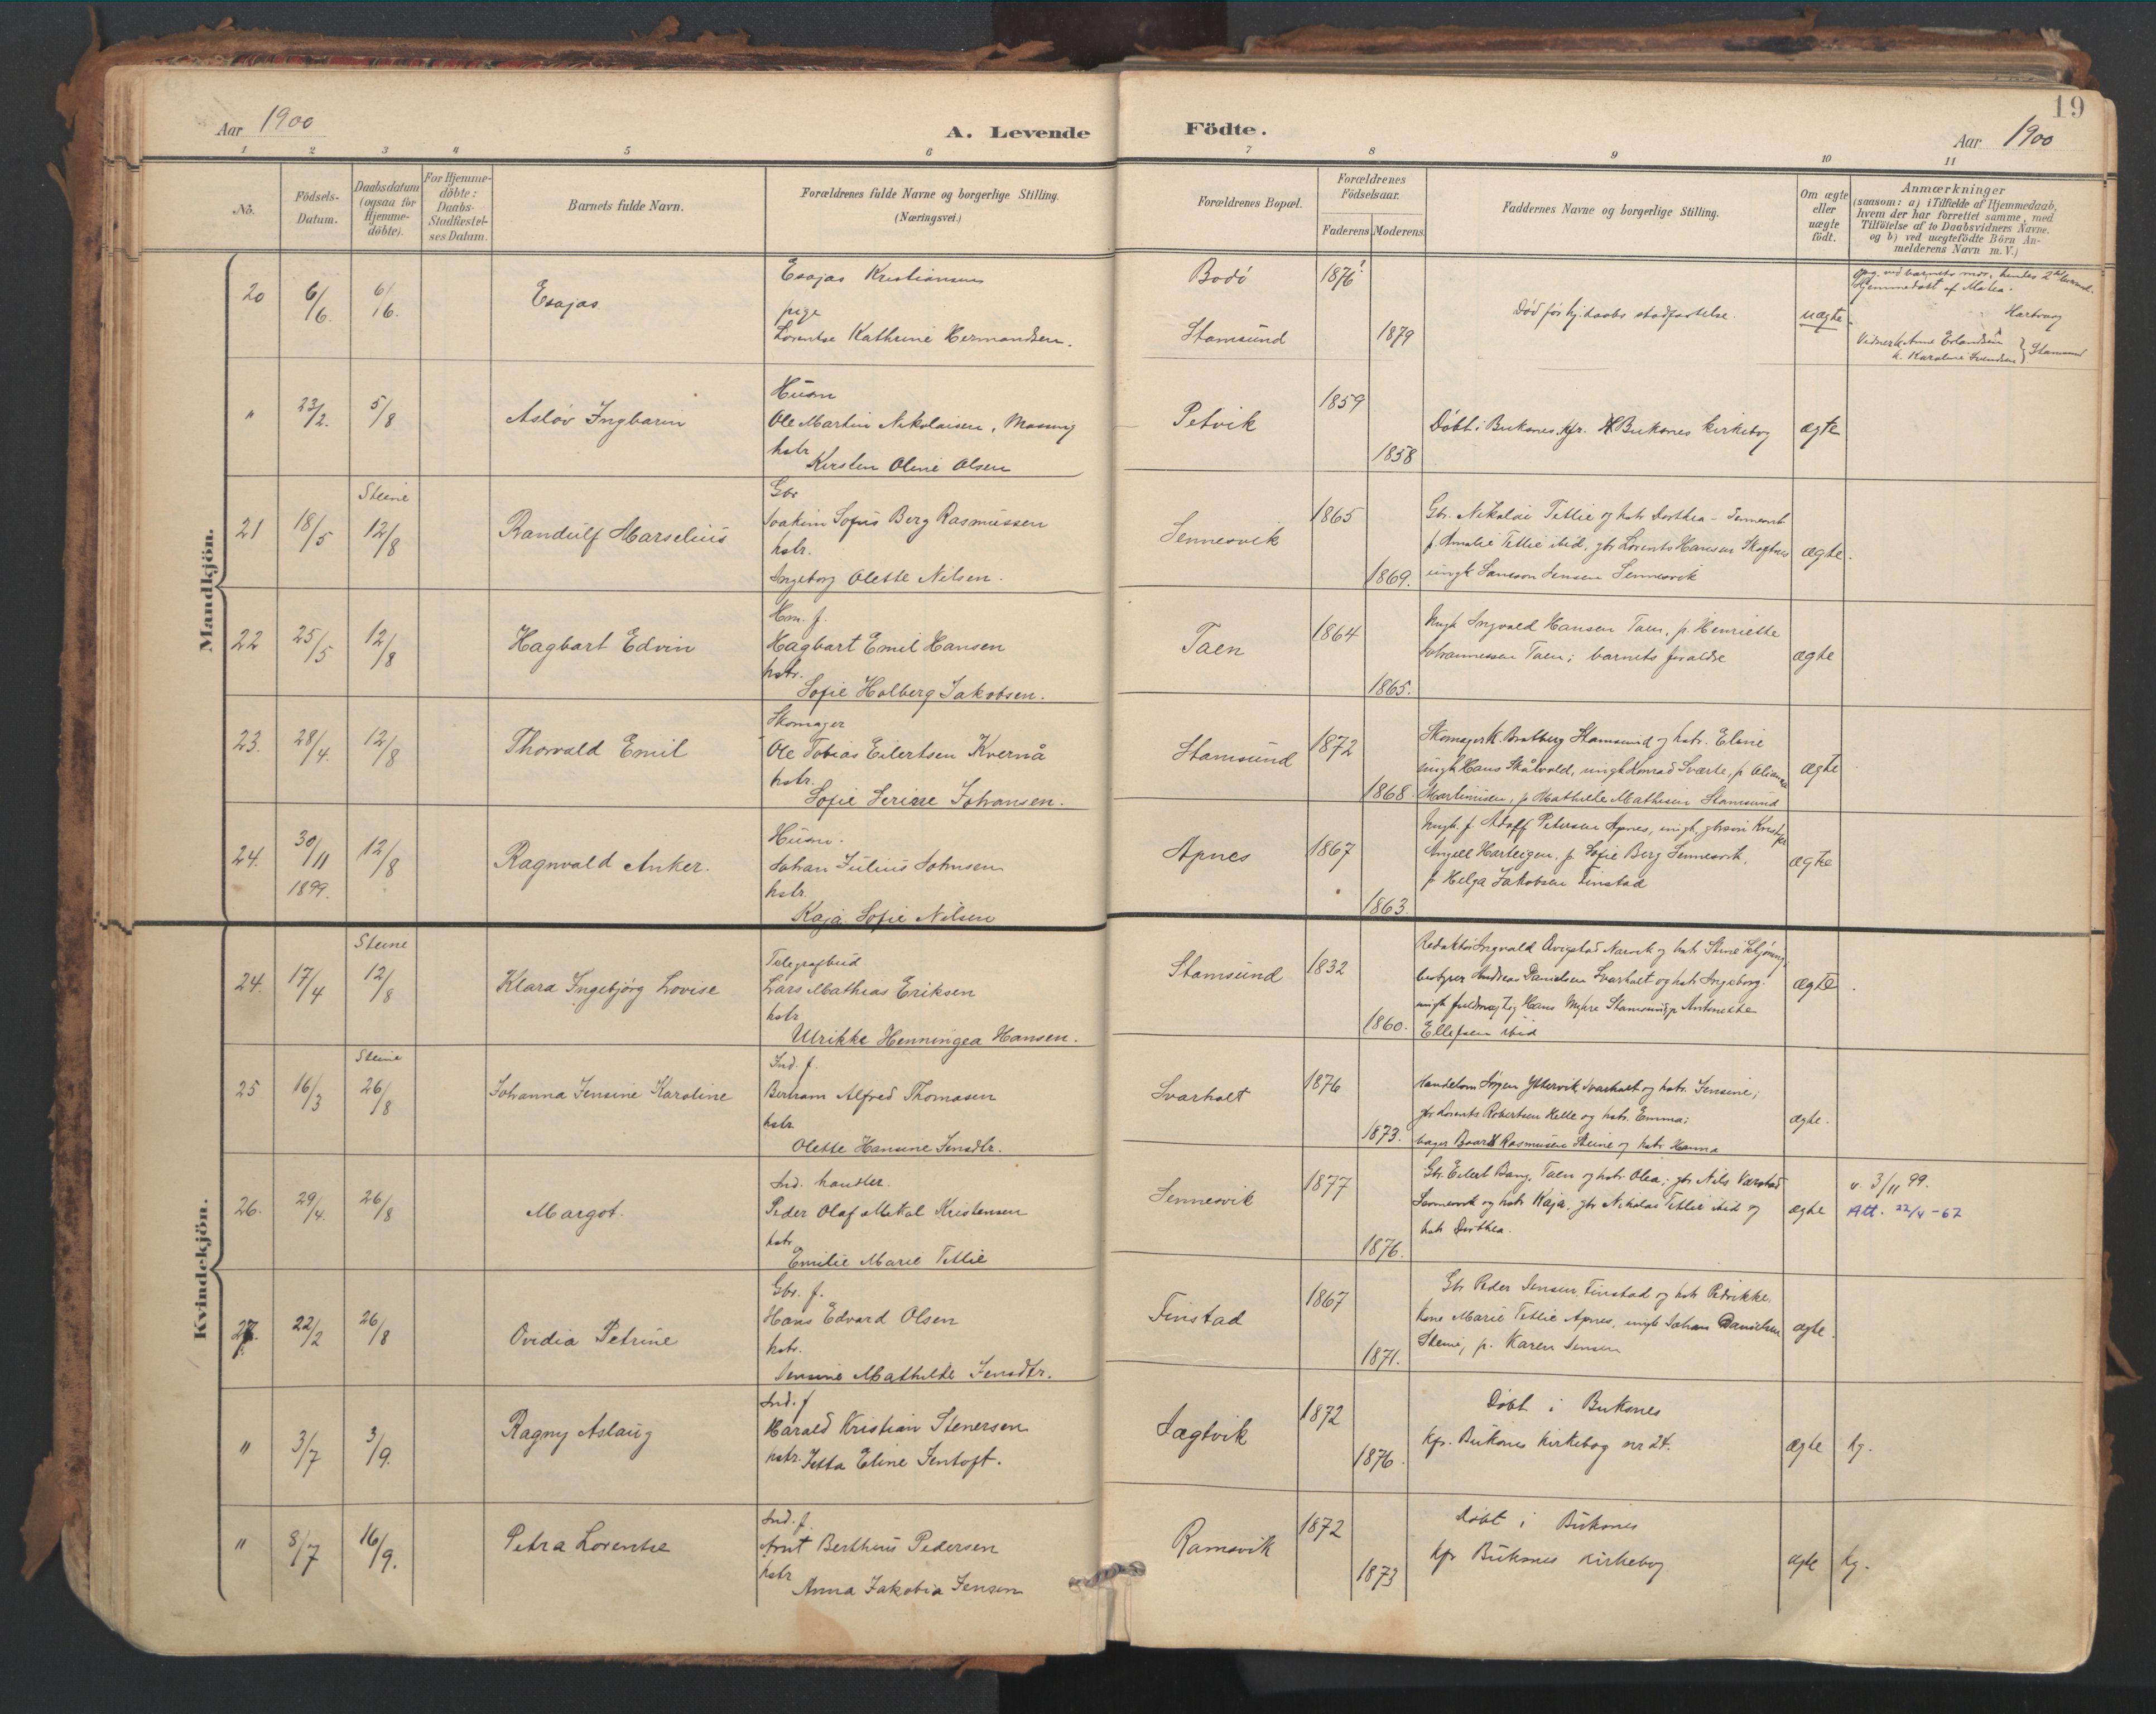 19
Aar 1900
A. Levende Födte.
Aar 1900
1 2 3 4 5 6 7 8 9 10 11
No.
Födsels-
Datum.
Daabsdatum
(ogsaa for
Hjemme-
döbte).
For Hjemme-
döbte:
Daabs-
Stadfæstel-
ses Datum.
Barnets fulde Navn.
Forældrenes fulde Navne og borgerlige Stilling.
(Næringsvei.)
Forældrenes Bopæl.
Forældrenes
Födselsaar.
Faderens Moderens
Faddernes Navne og borgerlige Stilling.
Om ægte
eller
uægte
födt.
Anmærkninger
(saasom: a) i Tilfælde af Hjemmedaab,
hvem der har forrettet samme, med
Tilföielse af to Daabsvidners Navne.
og b) ved uægtefödte Börn An-
melderens Navn m. V.)
Mandkjön.
20 6/6. 6/6. Esajas
Esajas Kristiansen
pige
Lorentse Kathrine Hermandsen.
Bodö 1876?
Stamsund 1879
Död för hj.daabs stadfæstelse.
uægte
Opg. ved barnets mor,
Hjemmedöbt af
Hartvig
Vidner: k. Anne Erlandsen
k. Karoline Svendsen } Stamsund
" 23/2. 5/8 Aslöv Ingbarin
Husm
Ole Martin Nikolaisen, Massing
hstr
Kirsten Oline Olsen
Petvik 1859
1858
Döbt i Buksnes, kfr. Buksnes kirkebog
ægte
Steine
21 18/5 12/8 Randulf Marselius
Gbr
Joakim Sofus Berg Rasmussen
hstr.
Ingeborg Olette Nilsen.
Sennesvik 1865
1869.
Gbr. Nikolai Tetlie og hstr Dorthea - Sennesvik
p. Amalie Tetlie ibid, gbr Lorents Hansen
ungk Samson Jensen Sennesvik
ægte.
22 25/5 12/8 Hagbart Edvin
Hm. f.
Hagbart Emil Hansen
hstr.
Sofie Holberg Jakobsen.
Taen 1864
1865.
Ungk Ingvald Hansen Taen, p. Henriette
Johannessen Taen; barnets forældre
ægte
23. 28/4. 12/8 Thorvald Emil
Skomager
Ole Tobias Eilertsen Kvernå
hstr.
Sofie Serine Johansen.
Stamsund 1872
1868.
Skomager K. Bratberg Stamsund og hstr. Eline
ungk Hans Skålvold, ungk Konrad Sværte, p
Martinisen, p Mathilde Mathisen Stamsund
ægte
24. 30/11 1899. 12/8 Ragnvald Anker.
Husm.
Johan Julius Johnsen
hstr.
Kaja Sofie Nilsen
Apnes 1867
1863.
Ungk. f. Adolf Petersen Apnes, ungk. gbrsön
Angell Harteigen, p. Sofie Berg Sennesvik,
p. Helga Jakobsen Finstad
ægte
Kvindekjön.
Steine
24. 17/4 12/8 Klara Ingebjörg Lovise
Telegrafbud
Lars Mathias Eriksen
hstr
Ulrikke Henningea Hansen.
Stamsund 1832
1860.
Redaktör Ingvald Narvik og hstr Stine
bestyrer Andreas Danielsen Svarholt og hstr Ingeborg.
ungk fuldmægtig Hans Myhre Stamsund, p Antonette
Ellefsen ibid
ægte.
Steine
25 16/3 26/8 Johanna Jensine Karoline
Ind. f.
Bertram Alfred Thomasen
hstr
Olette Hansine Jensdtr.
Svarholt 1876
1873.
Handelsm Jörgen Yttervik Svarholt og hstr. Jensine;
gbr Lorents Robertsen Helle og hstr. Emma;
bager Rasmussen Steine og hstr Hanna
ægte.
26. 29/4. 26/8 Margot.
Ind. handler.
Peder Olaf Mikal Kristensen
hstr
Emilie Marie Tetlie
Sennesvik 1877
1876.
Gbr. Eilert Bang, Taen og hstr. Olea; gbr Nils
Sennesvik og hstr Kaja, gbr Nikolai Tetlie ibid og
hstr Dorthea.
ægte
v. 3/11 99.
Att. 22/4 - 67
27. 22/2 26/8 Ovidia Petrine
Gbr. f.
Hans Edvard Olsen
hstr.
Jensine Mathilde Jensdtr.
Finstad 1867
1871.
Gbr Peder Jensen, Finstad og hstr Petrikke,
kone Marie Tetlie Apnes, ungk Johan Danielsen
Steine, p. Karen Jensen
ægte.
" 3/7 3/9. Ragny Aslaug
Ind. f
Harald Kristian Stenersen
hstr. Jetta Eline Jentoft.
Sagtvik 1872
1876.
Döbt i Buksnes
kfr. Buksnes kirkebog nr 24.
ægte kg.
" 8/7 16/9. Petra Lorentse
Ind. f.
Arnt Bertheus Pedersen
hstr
Anna Jakobia Jensen
Ramsvik 1872
1873
Döbt i Buksnes
kfr Buksnes kirkebog
ægte kg.